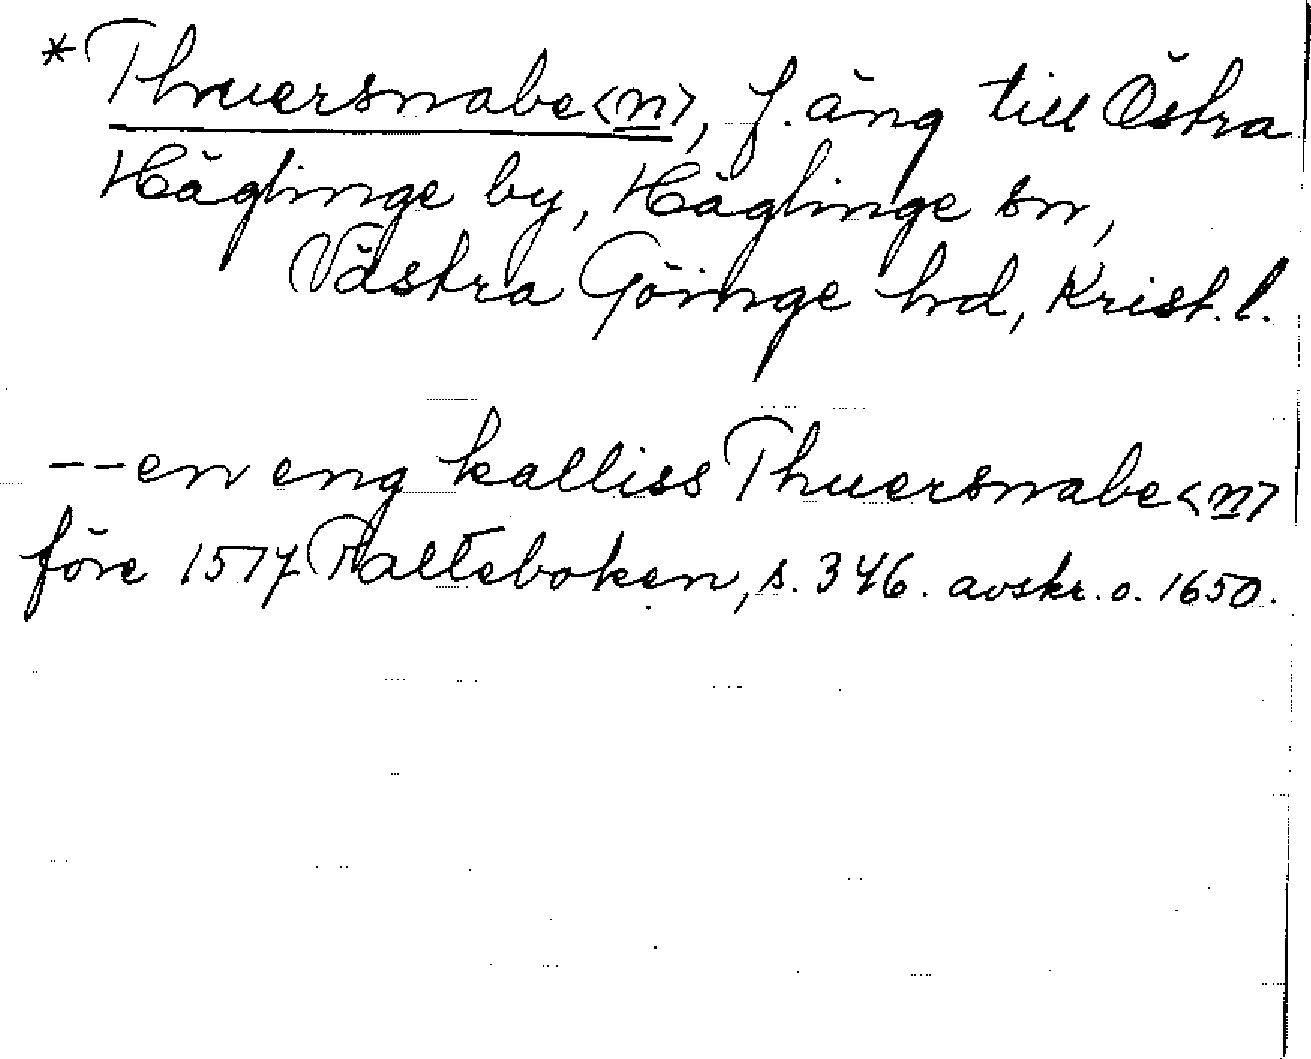 *Thuersnabe<n>, f. äng till Östra
Häglinge by, Häglinge sn,
Västra Göinge hd, Krist. l.
--en eng kalliss Thuersnabe<n>
före 1517 Palteboken, s. 346. avskr. o. 1650.